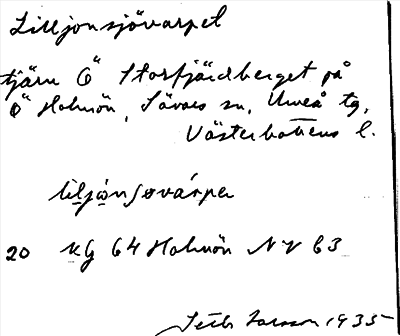 Lilljonsjövarpet
tjärn Ö Storfjärdberget på
Ö Holmön, Sävars sn, Umeå tg,
Västerbottens l.
liljònsøvárpe
20 Kg 64 Holmön NV 63
Larsson 1935